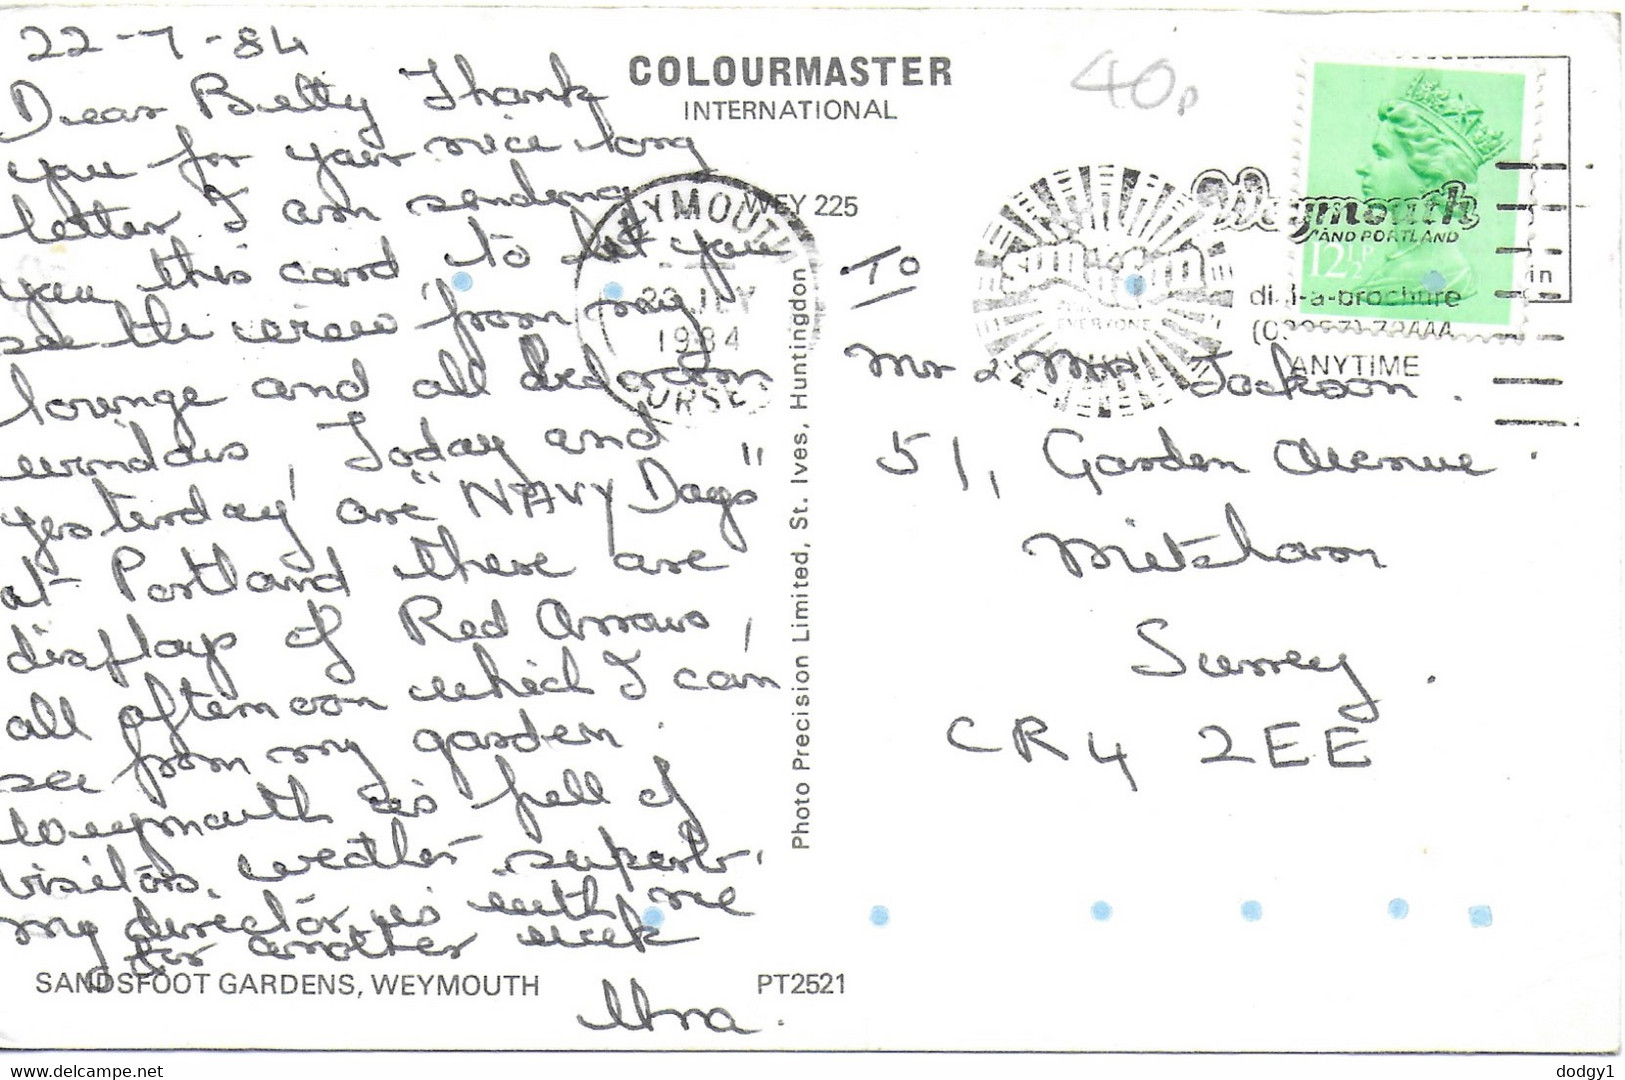 22-7-84
Dear Betty Thank
you for your nice long
letter. I am sending
you this card, to let you
see the view from my
lounge and all bedroom
windows, Today and
yesterday are "NAVY Days"
at Portland there are
displays of Red Arrows,
all afternoon which I can
see from my garden.
Weymouth is full of
visitors. weather superb.
my director is with me
for another week
Una.
SANDSFOOT GARDENS, WEYMOUTH
PT2521
COLOURMASTER
INTERNATIONAL
WEY 225
Photo Precision Limited, St. Ives, Huntingdon
40p
WEYMOUTH
1984
Weymouth
AND PORTLAND
dial-a-brochure
ANYTIME
EVERYONE
in
12½P
To
Mr & Mrs Jackson.
51, Garden Avenue
Mitcham
Surrey.
CR4 2EE
dodgy1